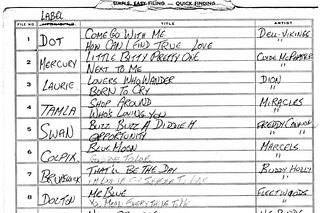 SIMPLE, EASY FILING — QUICK FINDING
LABEL
FILE NO. TITLE ARTIST
1 DOT COME GO WITH ME DELL-VIKINGS
HOW CAN I FIND TRUE LOVE "
2 MERCURY LITTLE BITTY PRETTY ONE CLYDE McPHATTER
NEXT TO ME "
3 LAURIE LOVERS WHO WANDER DION
BORN TO CRY "
4 TAMLA SHOP AROUND MIRACLES
WHO'S LOVING YOU "
5 SWAN BUZZ BUZZ A DIDDLE IT FREDDY CANNON
OPPORTUNITY "
6 COLPIX BLUE MOON MARCELS
"
7 BRUNSWICK THAT'LL BE THE DAY BUDDY HOLLY
"
8 DOLTON MR BLUE FLEETWOODS
YOU MEAN EVERYTHING TO ME "